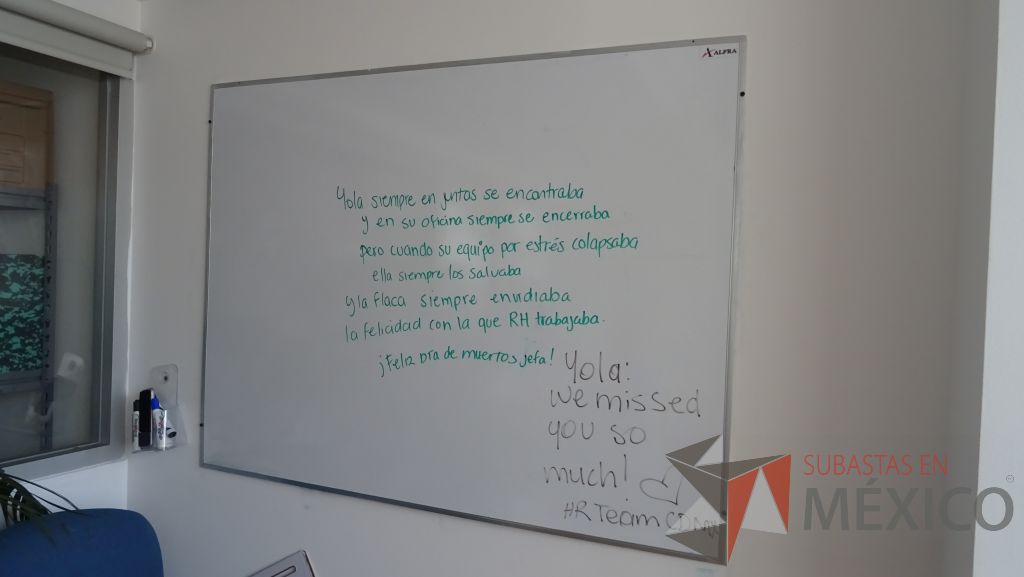 ALFRA
Yola siempre en juntas se encontraba
y en su oficina siempre se encerraba
pero cuando su equipo por estrés colapsaba
ella siempre los salvaba
y la flaca siempre envidiaba
la felicidad con la que RH trabajaba.
¡Feliz día de muertos jefa!
Yola:
we missed
you so
much!
HR Team CDMX
SUBASTAS EN
MÉXICO